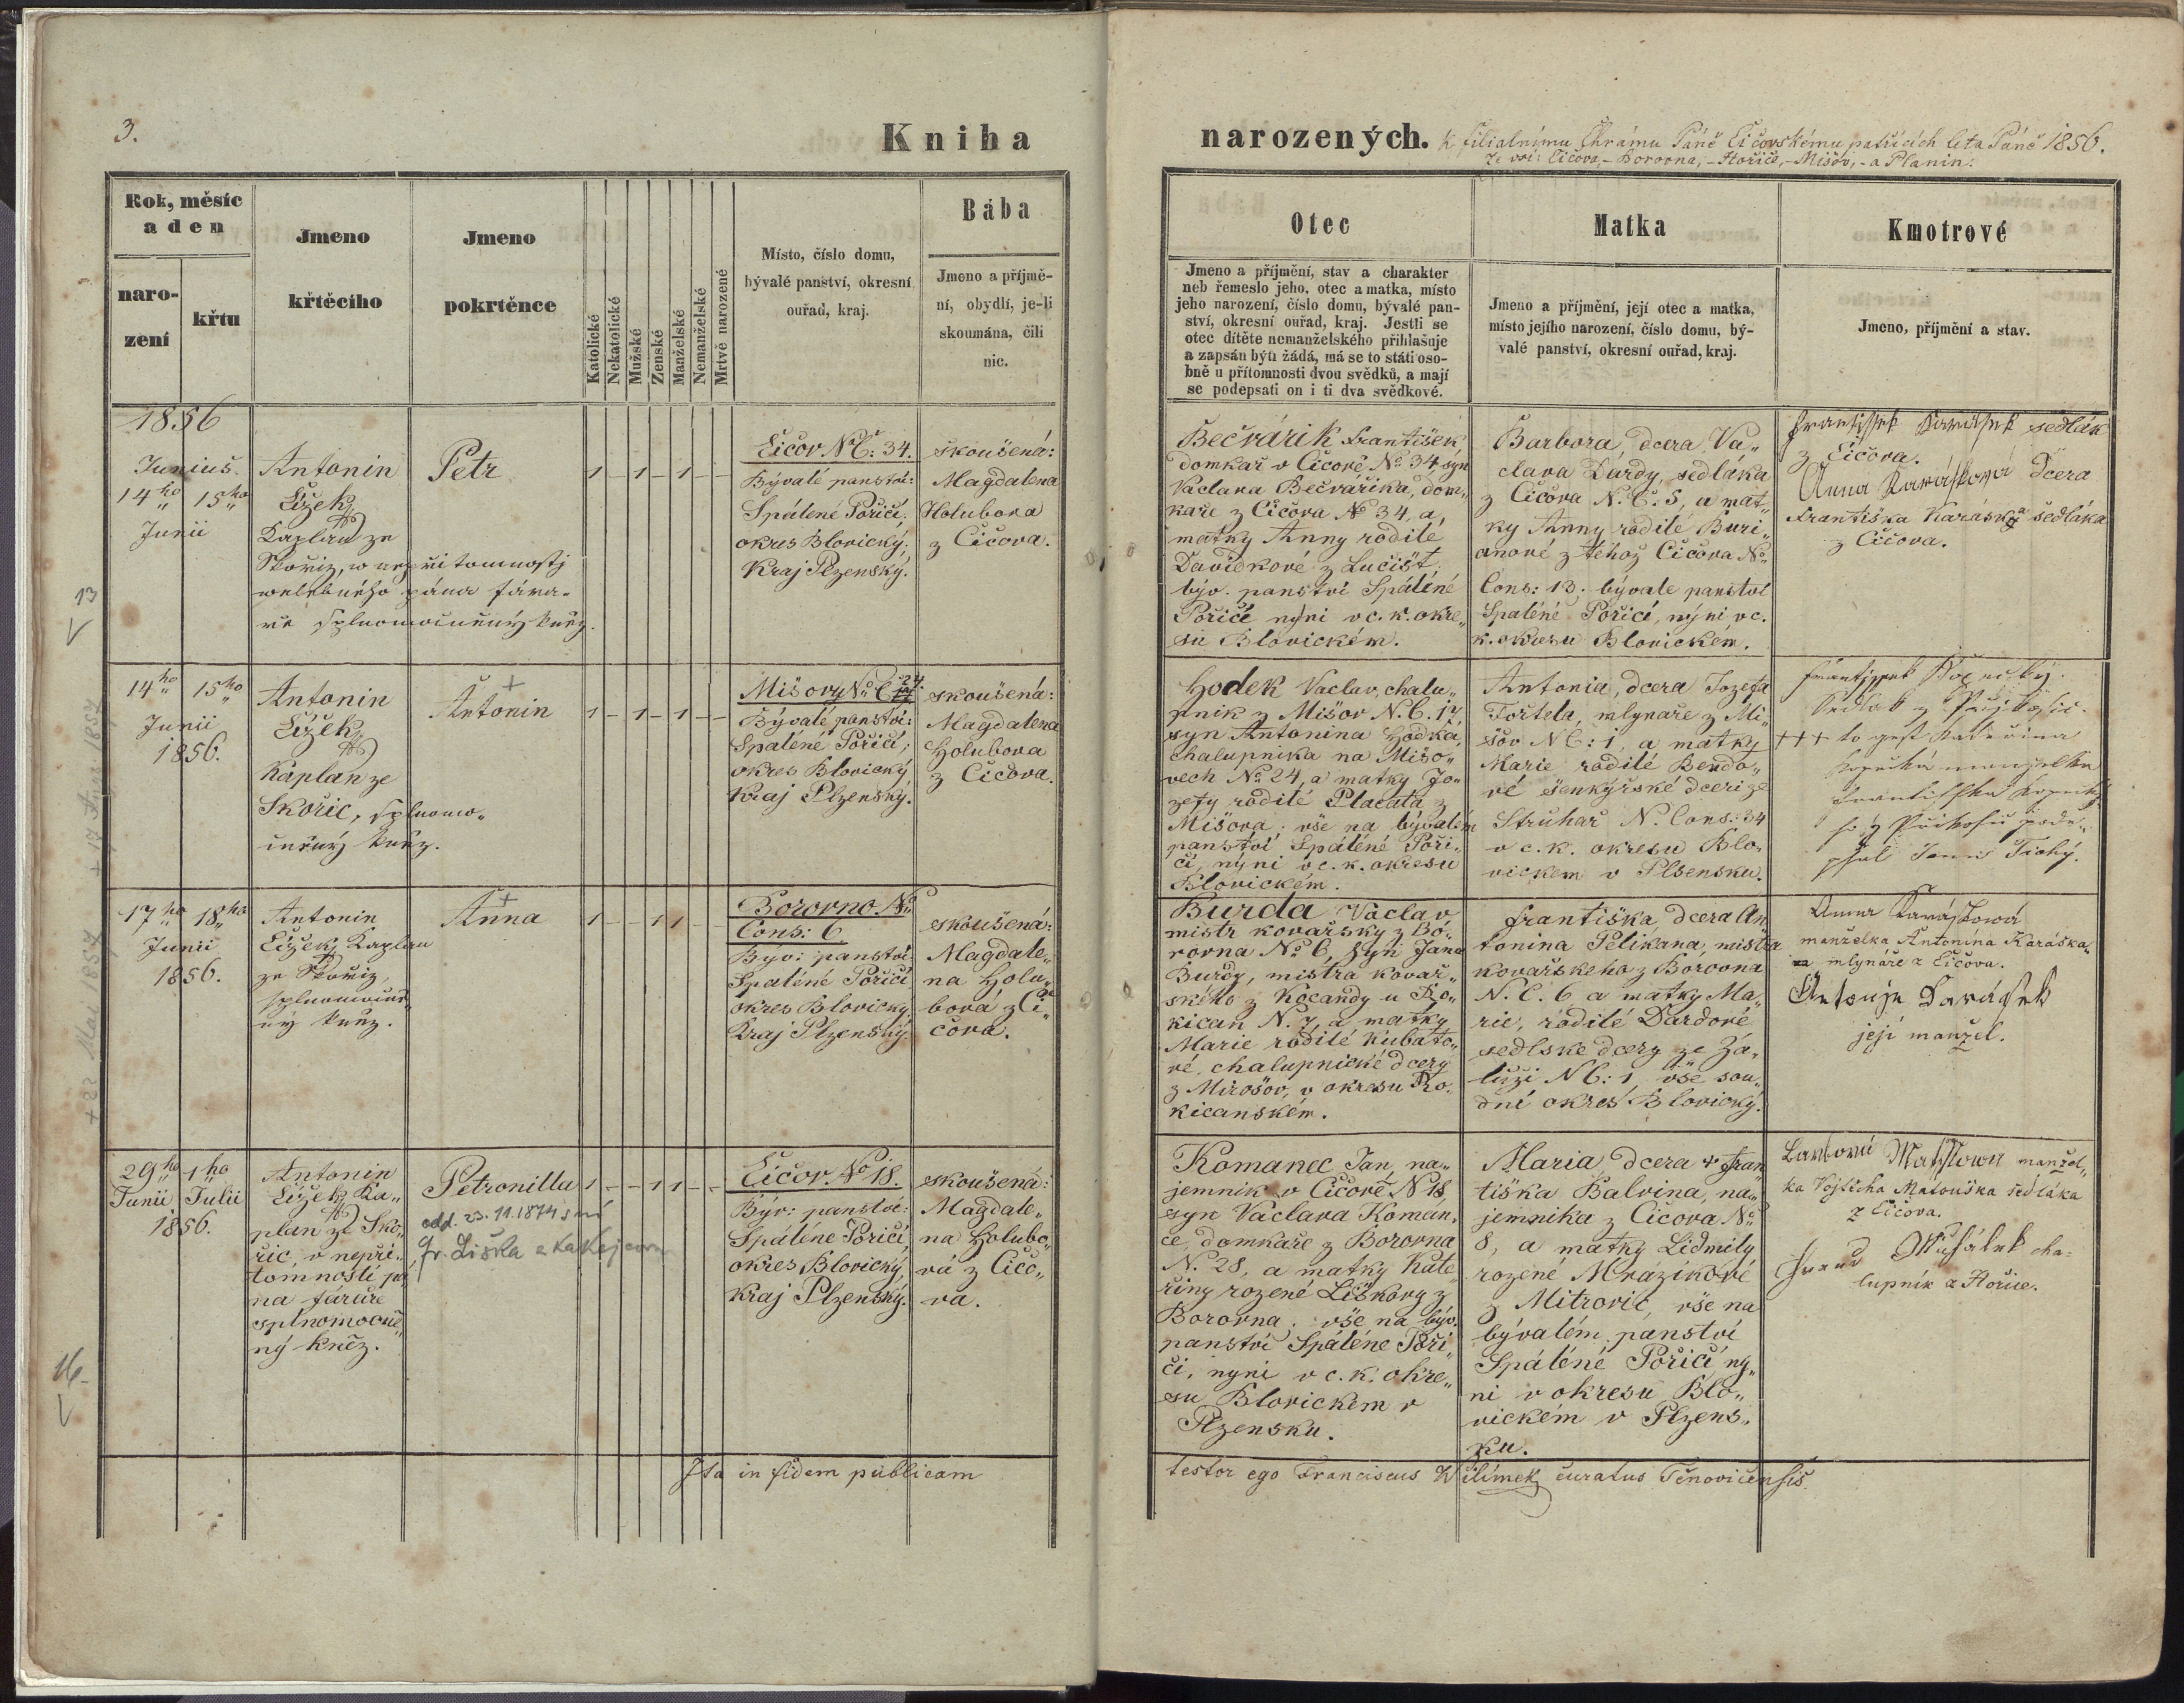 3.
Kniha
narozených. k filialnímu Chrámu Páně Čičovskému patřících léta Páně 1856.
ze vsí: Čičova,- Borovna,- Hořice,- Mišov,- a Planin:
Rok, měsíc
a den
naro-
zení
křtu
Jmeno
křtěcího
Jmeno
pokrtěnce
Katolické
Nekatolické
Mužské
Ženské
Manželské
Nemanželské
Mrtvě narozené
Místo, číslo domu,
bývalé panství, okresní
ouřad, kraj.
Bába
Jmeno a příjmě-
ní, obydlí, je-li
skoumána, čili
nic.
Otec
Jmeno a příjmění, stav a charakter
neb řemeslo jeho, otec a matka, místo
jeho narození, číslo domu, bývalé pan-
ství, okresní ouřad, kraj. Jestli se
otec dítěte nemanželského přihlašuje
a zapsán býti žádá, má se to státi oso-
bně u přítomnosti dvou svědků, a mají
se podepsati on i ti dva svědkové.
Matka
Jmeno a příjmění, její otec a matka,
místo jejího narození, číslo domu, bý-
valé panství, okresní ouřad, kraj.
Kmotrové
Jmeno, přijmění a stav.
1856
Junius.
14ho 15ho
Junii
13
Antonin
Čížek
Kaplan ze
Skořiz, w nepřitomnosti
welebného pána fára-
ře splnomocněný kněz.
Petr
1 - 1 - 1 - -
Čičov NČ: 34.
Bývalé panství:
Spálené Pořičí;
okres Blovický;
Kraj Plzenský.
skoušená:
Magdalena
Holubova
z Čičova.
Bečvářik František
domkař v Čičově No 34, syn
Vaclava Bečvářika, dom„
kaře z Čičova No 34, a,
matky Anny rodilé
Davidkové z Lučišt,
býv. panství Spálené
Pořičí nyni v c. k. okre„
su Blovickém.
Barbora, dcera Va„
clava Dardy, sedláka
z Čičova N. Č. 5, a mat„
ky Anny rodilé Buri„
anové z téhož Čičova No
Cons: 13. bývale panství
Spaléné Pořičí, nýni v c.
k. okresu Blovickém.
Frantissek Karásek sedlák
z Čičova.
Anna Karásková Dcera
Františka Karáska sedláka
z Čičova.
14ho 15ho
Junii
1856.
+ 17 Aug 1857
Antonin
Čížek
Káplan ze
Skořic, splnomo„
cněný kněz.
+
Antonin
1 - 1 - 1 - -
Mišovy No Č 24
Bývalé panství:
Spaléné Pořičí;
okres Blovický
Kraj Plzenský.
skoušená:
Magdalena
Holubova
z Čičova.
Hodek Vaclav, chalu„
pnik z Mišov N. C. 17
syn Antonina Hodka,
chalupnika na Mišo„
vech No 24, a matky Jo„
zefy rodilé Placata z
Mišova. vše na bývalém
panství Spálené Poři„
čí, nýni v c. k. okresu
Blovickém.
Antonia, dcera Jozefa
Tořtela, mlynaře z Mi„
šov NČ: 1, a matky
Marie rodilé Bendo„
vé šenkýřské dceri ze
Struhař N. Cons: 34
v c. k. okresu Blo„
vickem v Plsensku.
Frantissek Kopecký
Sedlák z Příkosic.
+++ to gest Kateřina
Kopecká manzelka
Frantisska Kopecký
ho z Přikosic pode„
psal Tichý.
17ho 18ho
Junii
1856.
+ 22 Mai 1857
Antonin
Čížek, Kaplan
ze Skořiz,
splnomocně„
ný kněz.
+
Anna
1 - - 1 1 - -
Borovno No
Cons: 6.
Býv: panství.
Spaléné Pořičí
okres Blovický
Kraj Plzenský.
skoušená:
Magdale„
na Holu„
bová z Či„
čova.
Burda Vaclav
mistr kovařsky z Bo„
rovna No 6, syn Jana
Burdy, mistra kovař„
ského z Kocandy u Ro„
kican N. 7 a matky
Marie rodilé Kubato„
vé, chalupnické dcery
z Mirošov, v okresu Ro„
kicanském.
Františka, dcera An„
tonina Pelikana, mistra
kovařskeho z Borovna
N. C. 6 a matky Ma„
rie, rodilé Dardové
sedlske dcery ze Zá„
luži NČ: 1, vše sou„
dní okres Blovický.
Anna Karáskowá
manželka Antonína Karáska„
mlynáře z Čičova.
Antonjn Karásek
její manžel.
29ho 1ho
Junii Julii
1856.
16.
Antonin
Čížek, Ka„
plan ze Sko„
řic, v nepři„
tomnosti pá„
na faráře
splnomocně„
ný kněz.
Petronilla
odd. 23. 11. 1874 s ní
Fr. Liška
1 - - 1 1 - -
Čičov. No 18.
Býv: panství:
Spálené Pořičí,
okres Blovický,
Kraj Plzenský.
skoušená:
Magdale„
na Holubo„
vá z Čičo„
va.
Komanec Jan, na„
jemnik v Čičově N 18,
syn Vaclava Koman„
ce, domkaře z Borovna
N. 28, a matky Kate
řiny rozené Liškovy z
Borovna. vše na býv.
panství Spáléne Poři„
čí, nyni v c. k. okre„
su Blovickem v
Plzensku.
Maria, dcera + Fran
tiška Balvina, na„
jemnika z Čičova No
8, a matky Lidmily
rozené Mrázíkové
z Mitrovic, vše na
bývalém panství
Spáléné Pořičí ny„
ni v okresu Blo„
vickém v Plzens„
ku.
Barbora Matisková manžel„
ka Vojtěcha Matouška sedláka
z Čičova.
cha-
lupník z Hořice.
Ita in fidem publicam
testor ego Franciscus Wilimek curatus Těnovicensis.